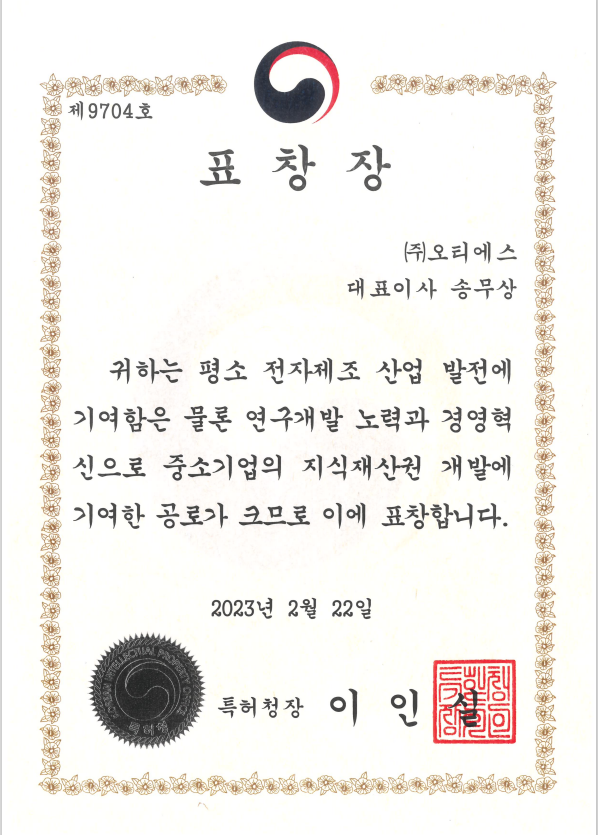 제9704호
표창장
㈜오티에스
대표이사 송무상
귀하는 평소 전자제조 산업 발전에
기여함은 물론 연구개발 노력과 경영혁
신으로 중소기업의 지식재산권 개발에
기여한 공로가 크므로 이에 표창합니다.
2023년 2월 22일
KOREAN INTELLECTUAL PROPERTY OFFICE
특허청
특허청장 이인실